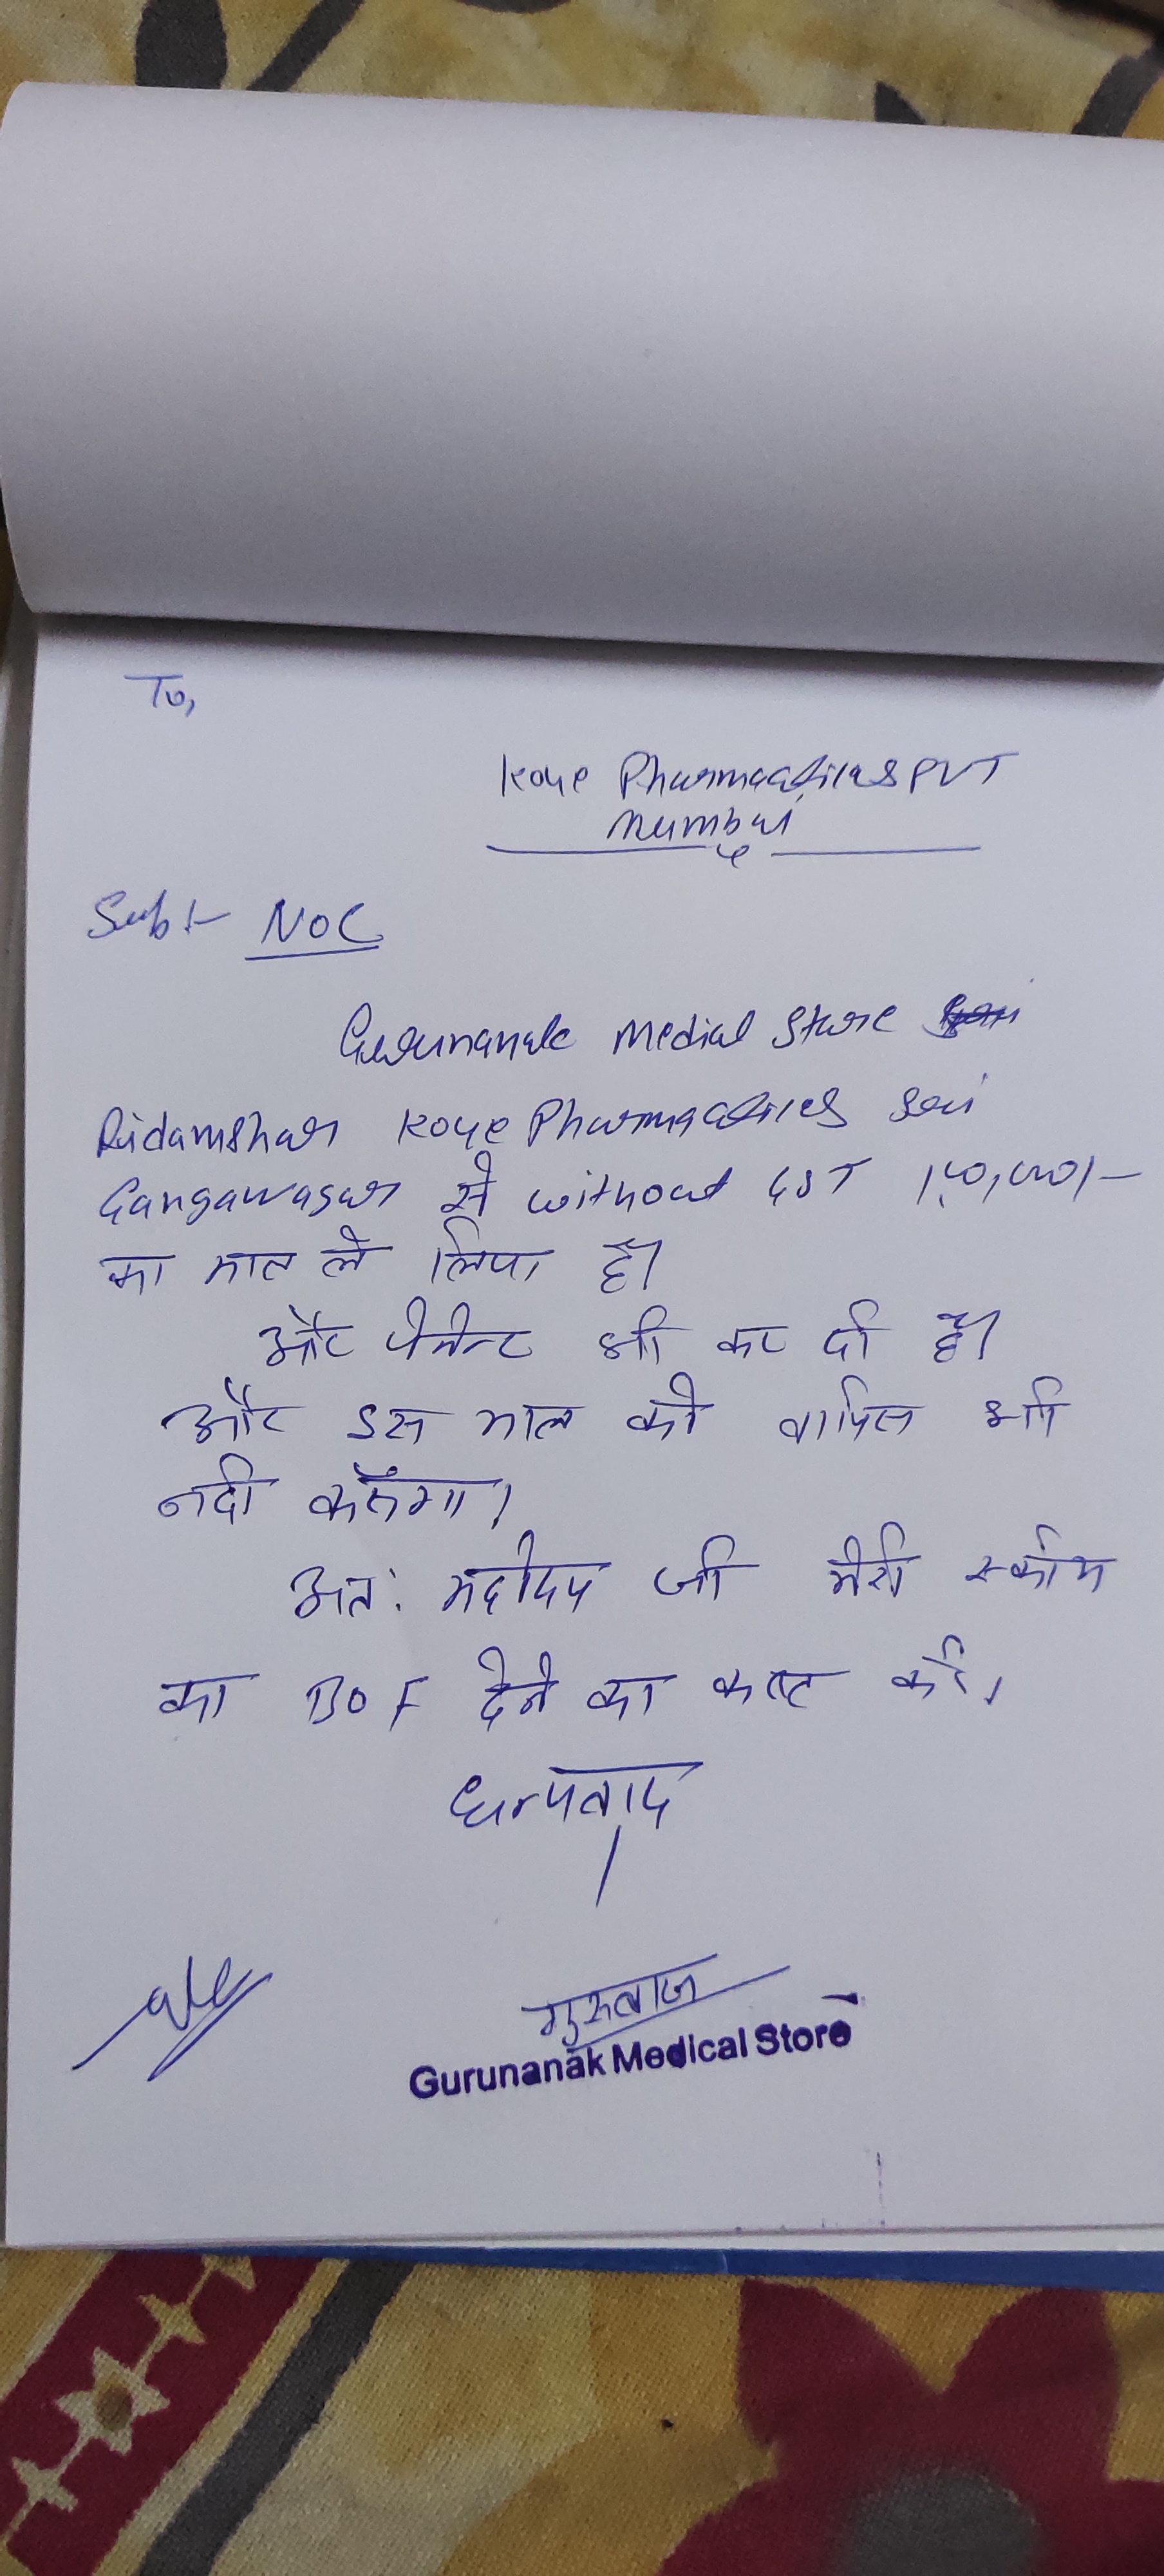 To,
Koye Pharmaceuticals PVT
Mumbai
Sub:- NOC
Gurunanak Medical Store
Ridamshar Koye Pharmaceuticals Sri
Gangawagar से without GST
का माल ले लिया है।
और पेमेन्ट भी कर दी है।
और इस माल को वापिस भी
नही करूँगा।
अत: महोदय जी मेरी स्कीम
का BOF देने का कष्ट करें।
धन्यवाद
Gurunanak Medical Store